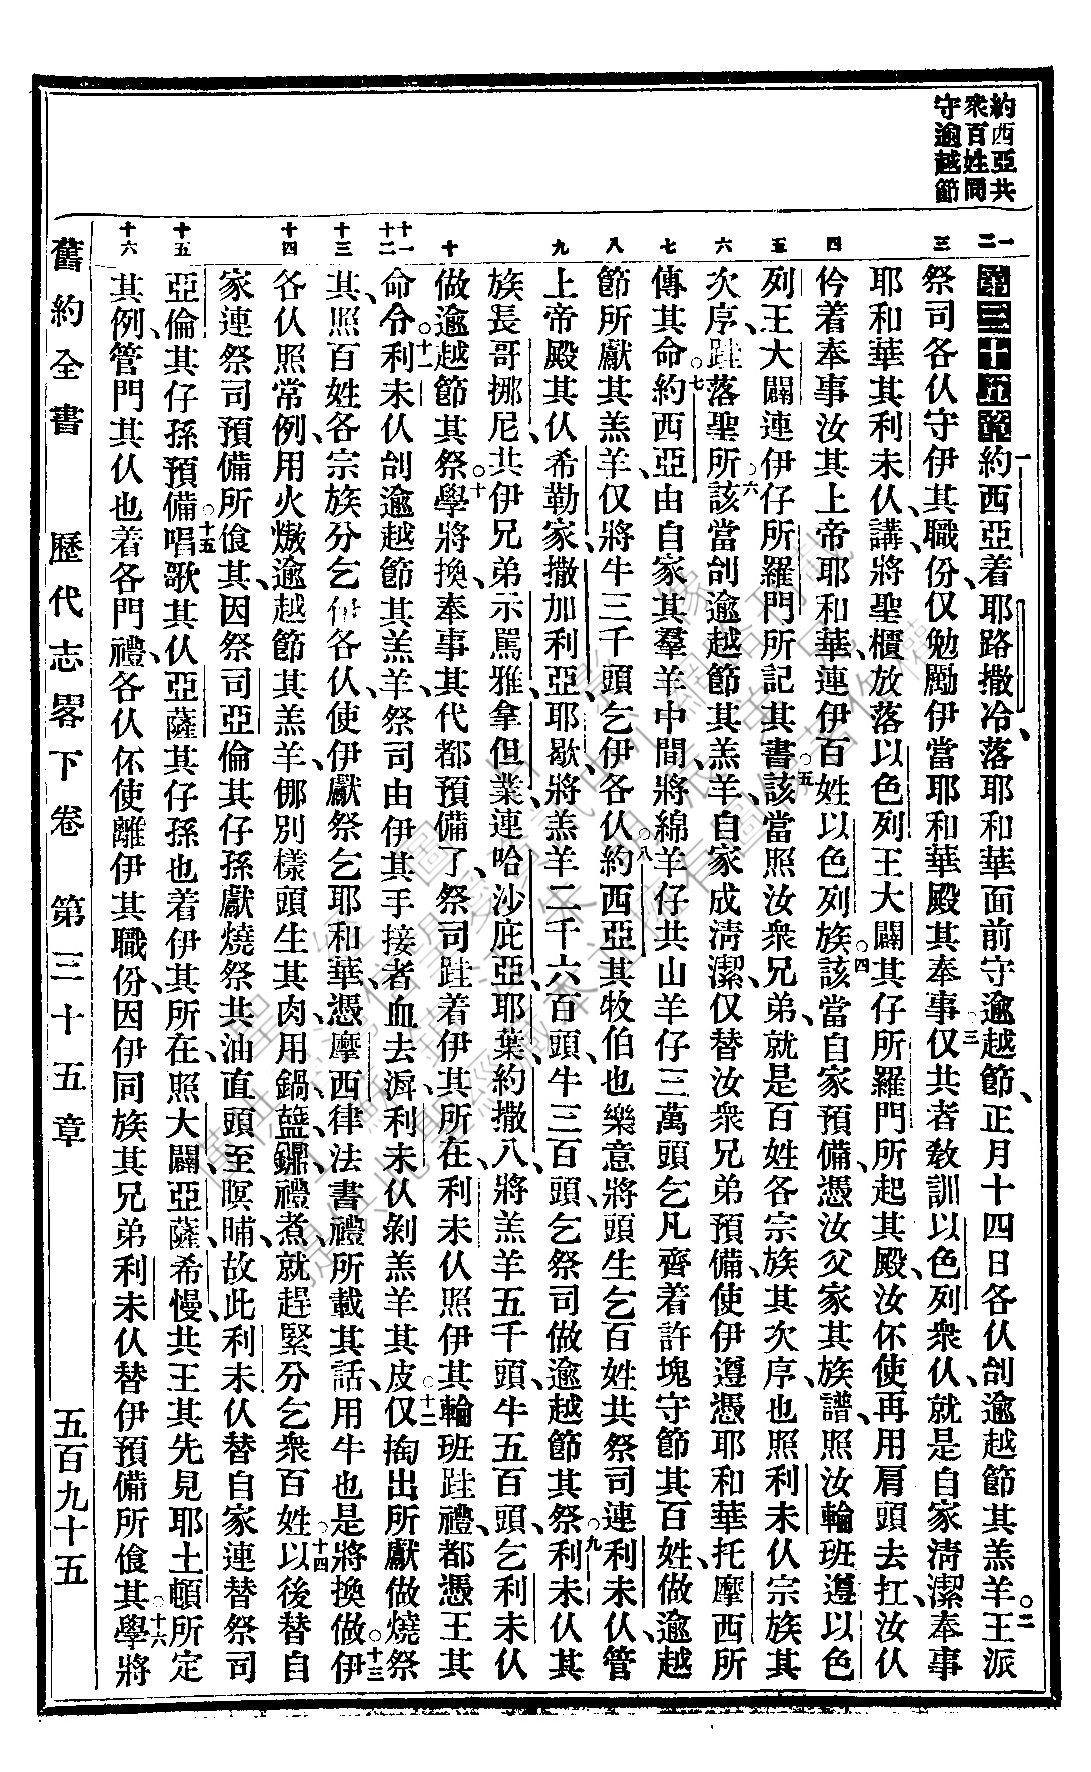 約西亞共
衆百姓同
守逾越節
一 二 三 四 五 六 七 八 九 十 十一 十二 十三 十四 十五 十六
第三十五章一約西亞着耶路撒冷落耶和華面前守逾越節、正月十四日各仈刣逾越節其羔羊。二王派
祭司各仈守伊其職份、仅勉勵伊當耶和華殿其奉事三仅共者教訓以色列衆仈、就是自家淸潔奉事
耶和華其利未仈講、將聖櫃放落以色列王大闢其仔所羅門所起其殿、汝伓使再用肩頭去扛、汝仈
仱着奉事汝其上帝耶和華、連伊百姓以色列族。四該當自家預備、憑汝父家其族譜、照汝輪班、遵以色
列王大闢連伊仔所羅門所記其書。五該當照汝衆兄弟、就是百姓各宗族其次序、也照利未仈宗族其
次序、跓落聖所。六該當刣逾越節其羔羊、自家成淸潔、仅替汝衆兄弟預備、使伊遵憑耶和華托摩西所
傳其命。七約西亞由自家其羣羊中間、將綿羊仔共山羊仔三萬頭乞凡齊着許塊守節其百姓、做逾越
節所獻其羔羊、仅將牛三千頭乞伊各仈。八約西亞其牧伯也樂意將頭生乞百姓共祭司連利未仈、管
上帝殿其仈希勒家、撒加利亞、耶歇、將羔羊二千六百頭、牛三百頭、乞祭司做逾越節其祭。九利未仈其
族長哥挪尼、共伊兄弟示罵雅、拿但業、連哈沙庇亞、耶葉、約撒八、將羔羊五千頭、牛五百頭、乞利未仈
做逾越節其祭。十學將換、奉事其代都預備了、祭司跓着伊其所在、利未仈照伊其輪班跓禮、都憑王其
命令。十一利未仈刣逾越節其羔羊、祭司由伊其手接者血去㴲、利未仈剝羔羊其皮。十二仅掏出所獻做燒祭
其、照百姓各宗族分乞伊各仈、使伊獻祭乞耶和華、憑摩西律法書禮所載其話、用牛也是將換做。十三伊
各仈照常例、用火燉逾越節其羔羊、那別樣頭生其肉、用鍋、䀋、鑃禮煮、就趕緊分乞衆百姓。十四以後替自
家連祭司預備所飡其、因祭司亞倫其仔孫獻燒祭共油、直頭至暝晡、故此利未仈替自家連替祭司
亞倫其仔孫預備。十五唱歌其仈、亞薩其仔孫也着伊其所在、照大闢、亞薩、希慢、共王其先見耶土頓所定
其例、管門其仈也着各門禮、各仈伓使離伊其職份、因伊同族其兄弟利未仈替伊預備所飡其。十六學將
舊約全書 歷代志畧下卷 第三十五章 五百九十五